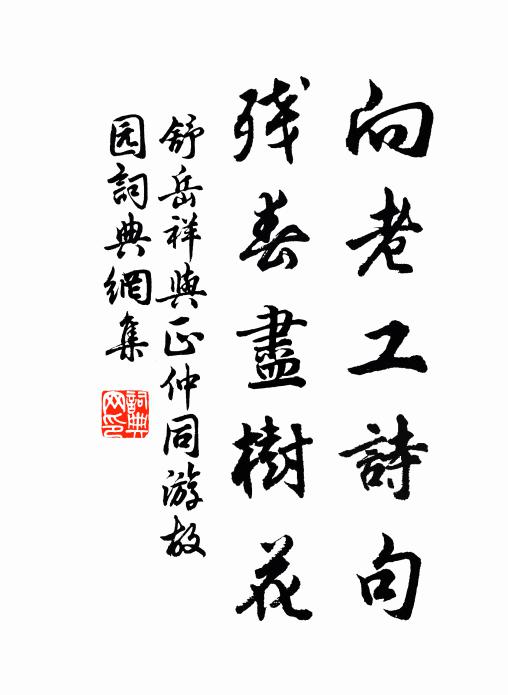 向老工詩句
残春盡樹花
舒岳祥與正仲同游故
园詞典網集
詞典
网印